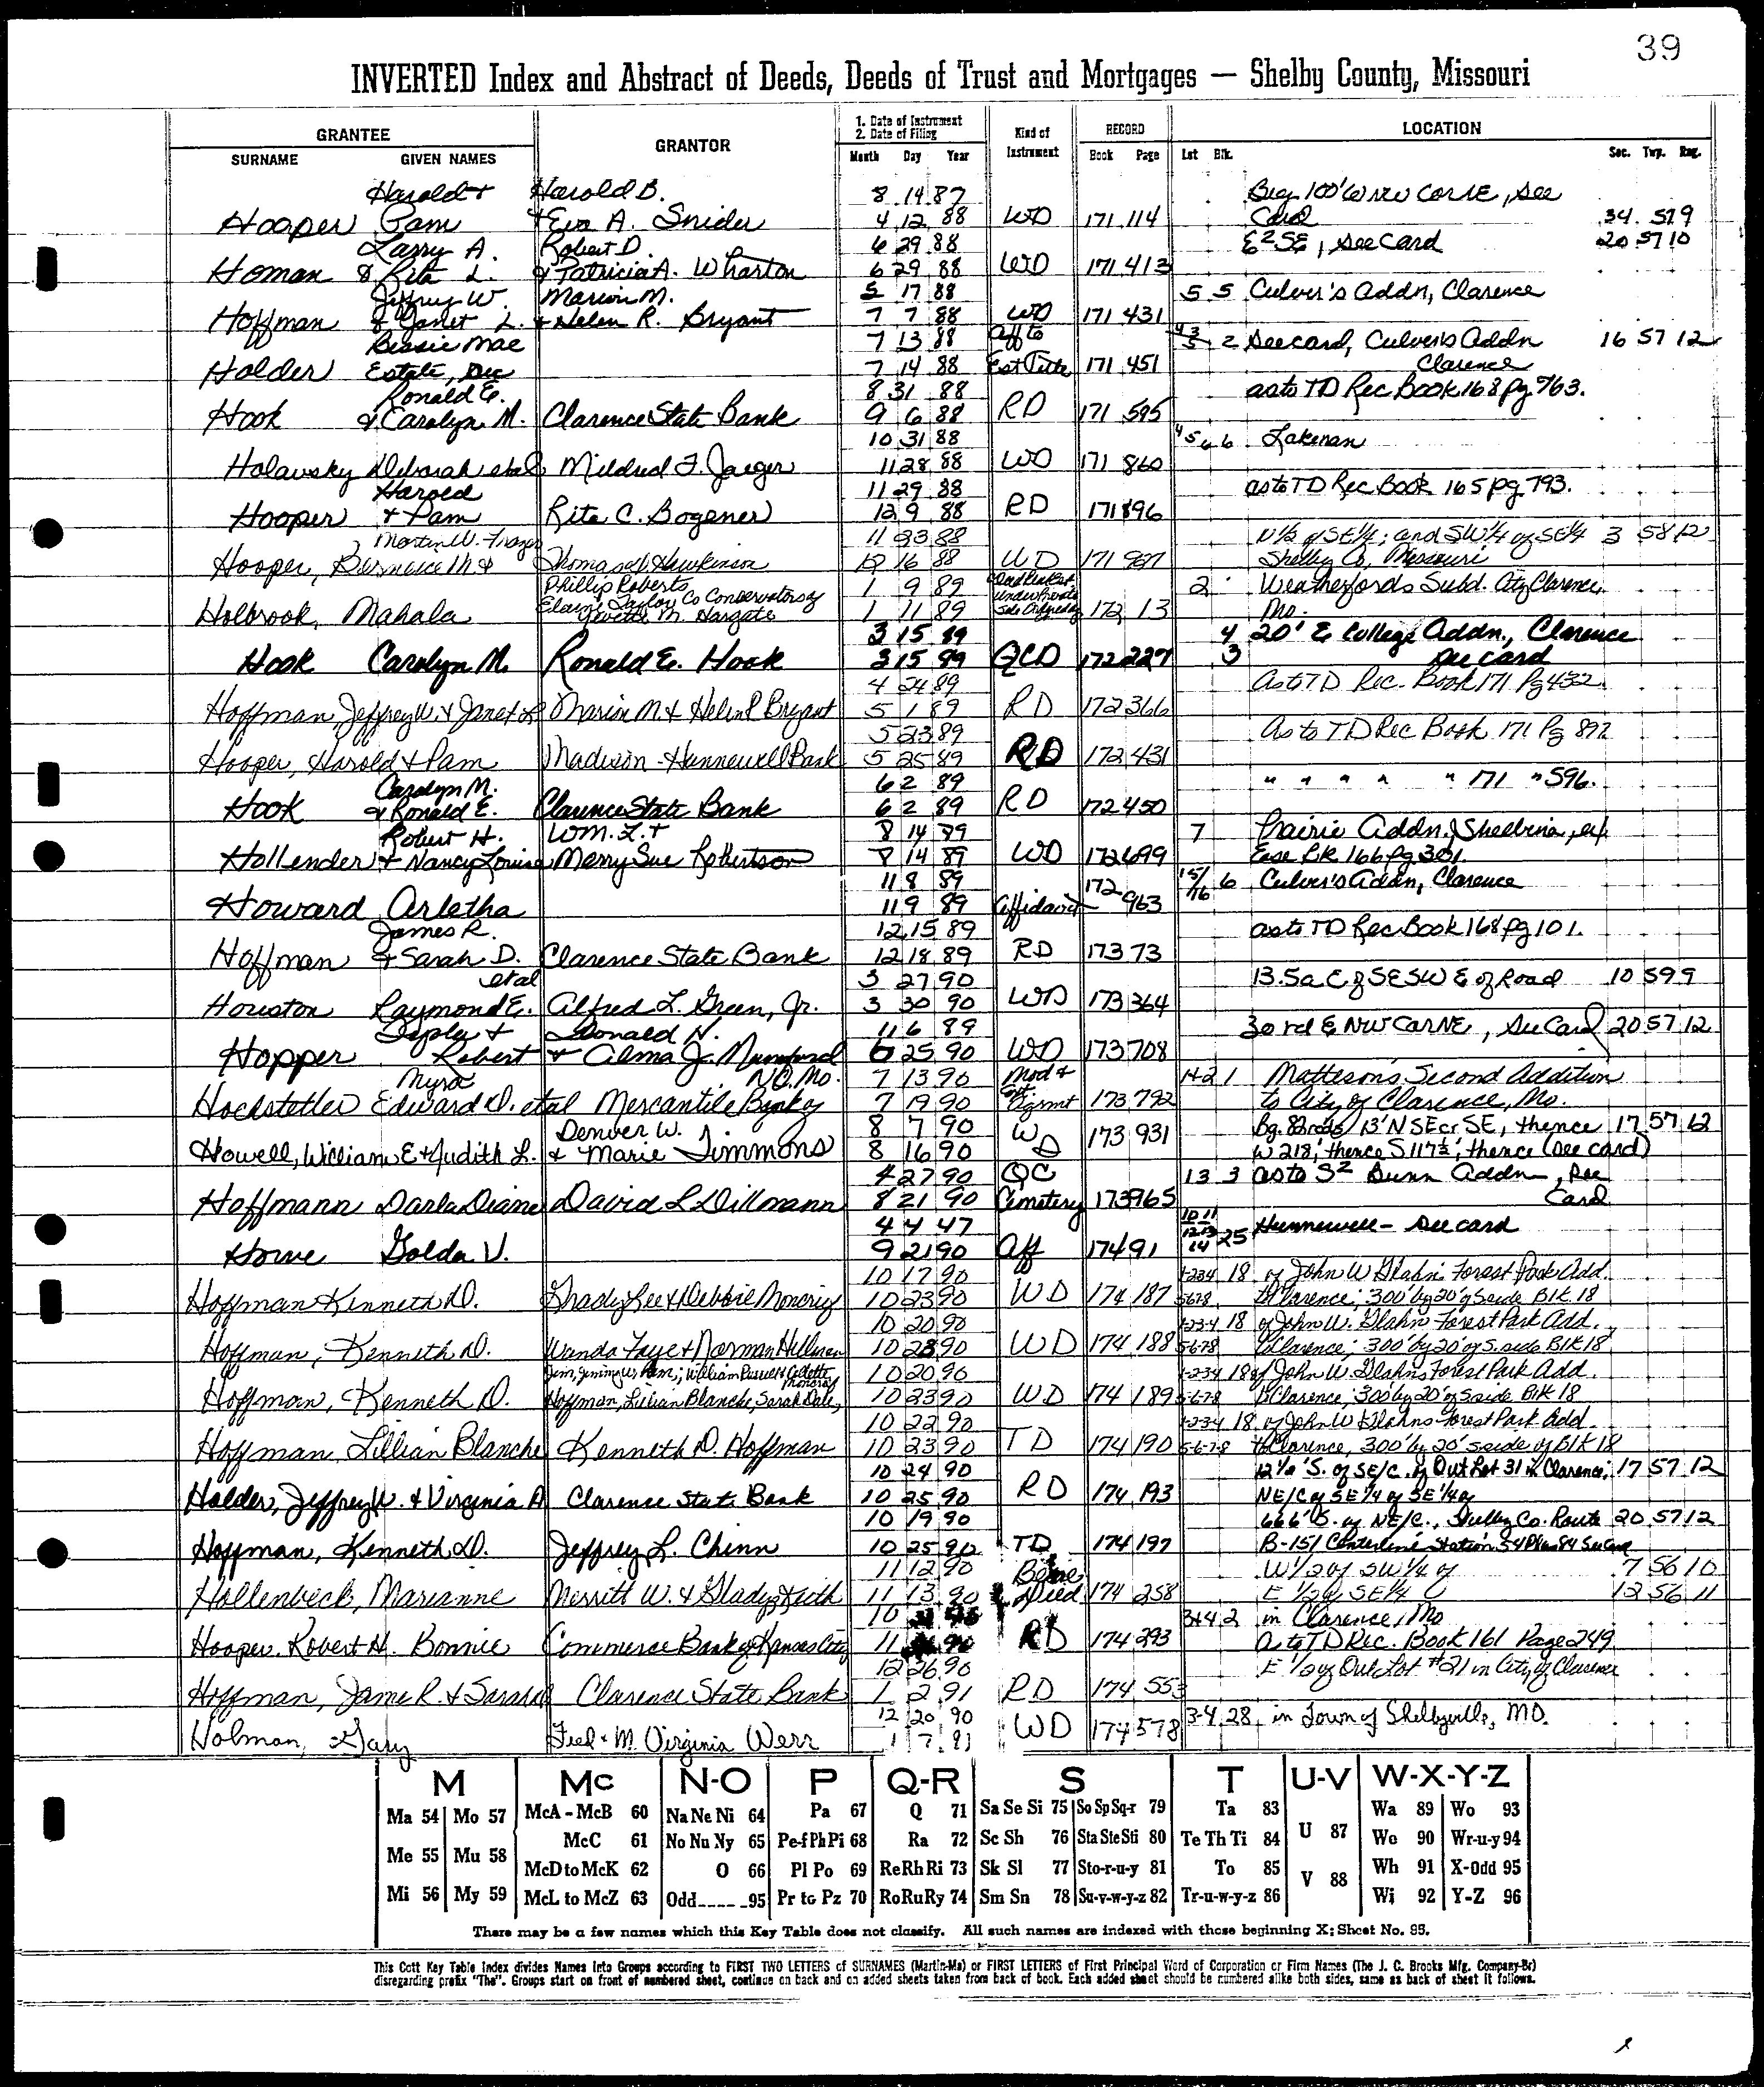 39
INVERTED Index and Abstract of Deeds, Deeds of Trust and Mortgages — Shelby County, Missouri
GRANTEE GRANTOR 1. Date of Instrument 2. Date of Filing Kind of Instrument RECORD LOCATION
SURNAME GIVEN NAMES Month Day Year Book Page Lot Blk. Sec. Twp. Rng.
Harold & Harold B. 8 14 87 Beg 100' W NW cor NE, see
Hooper Pam & Eva A. Snider 4 12 88 WD 171 114 Card 34 57 9
Larry A. Robert D. 6 29 88 E2 SE, see card 20 57 10
Homan & Rita L. & Patricia A. Wharton 6 29 88 WD 171 413
Jeffrey W. Marion M. 5 17 88 5 5 Culver's Addn, Clarence
Hoffman & Janet L. & Helen R. Bryant 7 7 88 WD 171 431
Bessie Mae 7 13 88 Aff to 2 See card, Culver's Addn 16 57 12
Holder Estate, Dec 7 14 88 Est Title 171 451 Clarence
Ronald E. 8 31 88 as to TD Rec Book 168 pg 763.
Hook & Carolyn M. Clarence State Bank 9 6 88 RD 171 595
10 31 88 6 Lakenan
Holawsky Deborah etal Mildred F. Jaeger 11 28 88 WD 171 860
Harold 11 29 88 as to TD Rec Book 165 pg 793.
Hooper & Pam Rita C. Bogener 12 9 88 RD 171 896
Martin W. Frazer 11 23 88 N½ of SE¼; and SW¼ of SE¼ 3 58 12
Hooper, Berniece M & Thomas Hawkinson 12 16 88 WD 171 Shelby Co, Missouri
Phillip Roberts 1 9 89 2 Weatherfords Subd. City Clarence,
Holbrook, Mahala Elaine Taylor Co Conservators of Yvette M. Hargate 1 11 89 172 13 Mo.
3 15 89 4 20' E College Addn., Clarence
Hook Carolyn M. Ronald E. Hook 3 15 89 QCD 172 227 3 See card
4 24 89 As to TD Rec. Book 171 Pg 432.
Hoffman Jeffrey W. & Janet L Marion M & Helen R Bryant 5 1 89 RD 172 366
5 23 89 As to TD Rec Book 171 Pg 897
Hooper, Harold & Pam Madison-Hunnewell Bank 5 25 89 RD 172 431
Carolyn M. 6 2 89 " " " " " 171 " 596.
Hook & Ronald E. Clarence State Bank 6 2 89 RD 172 450
Robert H. Wm. L. & 8 14 89 7 Prairie Addn, Shelbina, ex.
Hollender & Nancy Louise Merry Sue Robertson 8 14 89 WD 172 699 Ease Bk 166 pg 301.
11 8 89 15/16 6 Culver's Addn, Clarence
Howard Arletha 11 9 89 Affidavit 172 963
James R. 12 15 89 as to TD Rec Book 168 pg 101.
Hoffman & Sarah D. Clarence State Bank 12 18 89 RD 173 73
etal 3 27 90 13.5a C of SE SW E of Road 10 59 9
Houston Raymond E. Alfred L. Green, Jr. 3 30 90 WD 173 364
& Donald N. 11 6 89 30 rd E NW Car NE, See Card 20 57 12
Hopper Robert & Alma J. Mumford 6 25 90 WD 173 708
Myra NC. Mo. 7 13 90 Mod & 1+2 1 Matteson's Second Addition
Hochstetler Edward D. etal Mercantile Bank of 7 19 90 Ext Agrmt 173 792 to City of Clarence, Mo.
Denver W. 8 7 90 Bg. 82 rods 13' N SE cr SE, thence 17 57 12
Howell, William E & Judith L. & Marie Timmons 8 16 90 WD 173 931 W 218', thence S 117½', thence (see card)
4 27 90 QC 13 3 as to S2 Dunn Addn, See
Hoffmann Darla Diane David L Dillmann 8 21 90 Cemetery 173 965 Card
4 4 47 10 11 12 13 14 25 Hunnewell - See card
Howe Golda V. 9 21 90 Aff 174 91
10 17 90 1-2-3-4 18 of John W Glahn Forest Park Add.
Hoffman Kenneth D. Grady Lee & Debbie Moncrief 10 23 90 WD 174 187 5-6-7-8 Clarence; 300' by 20' of S side Blk 18
10 20 90 1-2-3-4 18 of John W. Glahn Forest Park Add.
Hoffman, Kenneth D. Wanda Faye & Norman Hillman 10 23 90 WD 174 188 5-6-7-8 Clarence; 300' by 20' of S. side Blk 18
10 20 90 1-2-3-4 18 of John W. Glahns Forest Park Add.
Hoffman, Kenneth D. Hoffman, Lillian Blanche, Sarah Dale, 10 23 90 WD 174 189 5-6-7-8 Clarence; 300' by 20' of S side Blk 18
10 22 90 1-2-3-4 18 of John W Glahns Forest Park Add.
Hoffman, Lillian Blanche Kenneth D. Hoffman 10 23 90 TD 174 190 5-6-7-8 to Clarence, 300' by 20' S side of Blk 18
10 24 90 12½' S. of SE/C. of Out Lot 31 in Clarence; 17 57 12
Holder, Jeffrey W. & Virginia A Clarence State Bank 10 25 90 RD 174 193 NE/C of SE 1/4 of SE 1/4 of
10 19 90 666' S. of NE/C., Shelby Co. Route 20 57 12
Hoffman, Kenneth D. Jeffrey L. Chinn 10 25 90 TD 174 197 B-151 Centerline Station 54 Plus 84 See Card
11 12 90 W 1/2 of SW 1/4 of 7 56 10
Hollenbeck, Marianne Merritt W. & Gladys Keith 11 13 90 Deed 174 258 E 1/2 of SE 1/4 12 56 11
10 3+4 2 in Clarence, Mo
Hooper, Robert H. Bonnie Commerce Bank of Kansas City 11 90 RD 174 293 as to TD Rec. Book 161 Page 249
12 26 90 E 1/2 of Out Lot #21 in City of Clarence
Hoffman, James R. & Sarah D Clarence State Bank 1 2 91 RD 174 553
12 20 90 3-4 28 in Town of Shelbyville, MO.
Holman, Gary Fred & M. Virginia Werr 1 7 91 WD 174 578
M Mc N-O P Q-R S T U-V W-X-Y-Z
Ma 54 Mo 57 McA - McB 60 Na Ne Ni 64 Pa 67 Q 71 Sa Se Si 75 So Sp Sq-r 79 Ta 83 U 87 Wa 89 Wo 93
Me 55 Mu 58 McC 61 No Nu Ny 65 Pe-f Ph Pi 68 Ra 72 Sc Sh 76 Sta Ste Sti 80 Te Th Ti 84 We 90 Wr-u-y 94
McD to McK 62 O 66 Pl Po 69 Re Rh Ri 73 Sk Sl 77 Sto-r-u-y 81 To 85 V 88 Wh 91 X-Odd 95
Mi 56 My 59 McL to McZ 63 Odd 95 Pr to Pz 70 Ro Ru Ry 74 Sm Sn 78 Su-v-w-y-z 82 Tr-u-w-y-z 86 Wi 92 Y-Z 96
There may be a few names which this Key Table does not classify. All such names are indexed with those beginning X; Sheet No. 95.
This Cott Key Table Index divides Names into Groups according to FIRST TWO LETTERS of SURNAMES (Martin-Ma) or FIRST LETTERS of First Principal Word of Corporation or Firm Names (The J. C. Brooks Mfg. Company-Br)
disregarding prefix "The". Groups start on front of numbered sheet, continue on back and on added sheets taken from back of book. Each added sheet should be numbered alike both sides, same as back of sheet it follows.